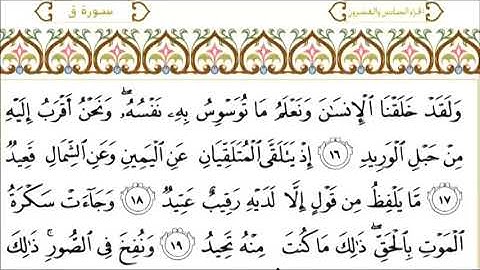 سورة ق
الجزء السادس والعشرون
وَلَقَدْ خَلَقْنَا ٱلْإِنسَـٰنَ وَنَعْلَمُ مَا تُوَسْوِسُ بِهِۦ نَفْسُهُۥ ۖ وَنَحْنُ أَقْرَبُ إِلَيْهِ
مِنْ حَبْلِ ٱلْوَرِيدِ ١٦ إِذْ يَتَلَقَّى ٱلْمُتَلَقِّيَانِ عَنِ ٱلْيَمِينِ وَعَنِ ٱلشِّمَالِ قَعِيدٌ
١٧ مَّا يَلْفِظُ مِن قَوْلٍ إِلَّا لَدَيْهِ رَقِيبٌ عَتِيدٌ ١٨ وَجَآءَتْ سَكْرَةُ
ٱلْمَوْتِ بِٱلْحَقِّ ۖ ذَٰلِكَ مَا كُنتَ مِنْهُ تَحِيدُ ١٩ وَنُفِخَ فِى ٱلصُّورِ ۚ ذَٰلِكَ